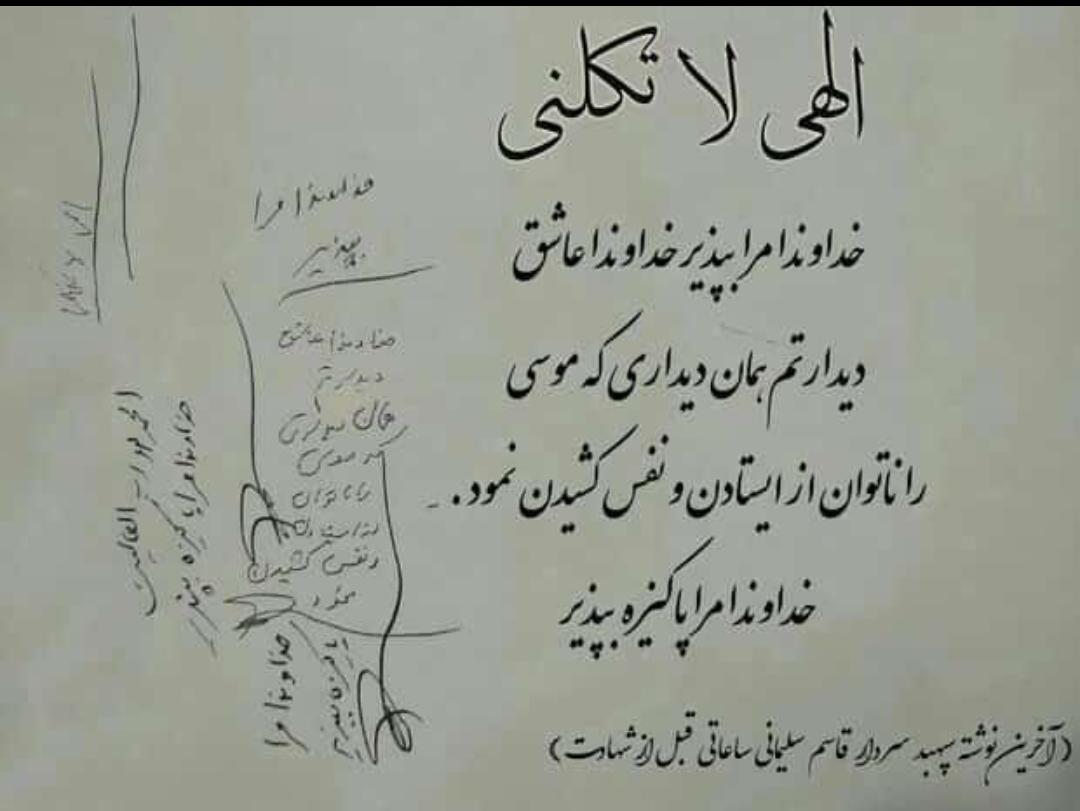 الهی لا تکلنی
خداوندا مرا بپذیر خداوندا عاشق
دیدارتم همان دیداری که موسی
را ناتوان از ایستادن و نفس کشیدن نمود.
خداوندا مرا پاکیزه بپذیر
(آخرین نوشته سپهبد سردار قاسم سلیمانی ساعاتی قبل از شهادت)
خداوندا مرا
بپذیر
خداوندا عاشق
دیدارتم
همان دیداری
که موسی
را ناتوان
از ایستادن
و نفس کشیدن
نمود
خداوندا مرا
پاکیزه بپذیر
خداوندا مرا پاکیزه بپذیر
الحمد لله رب العالمین